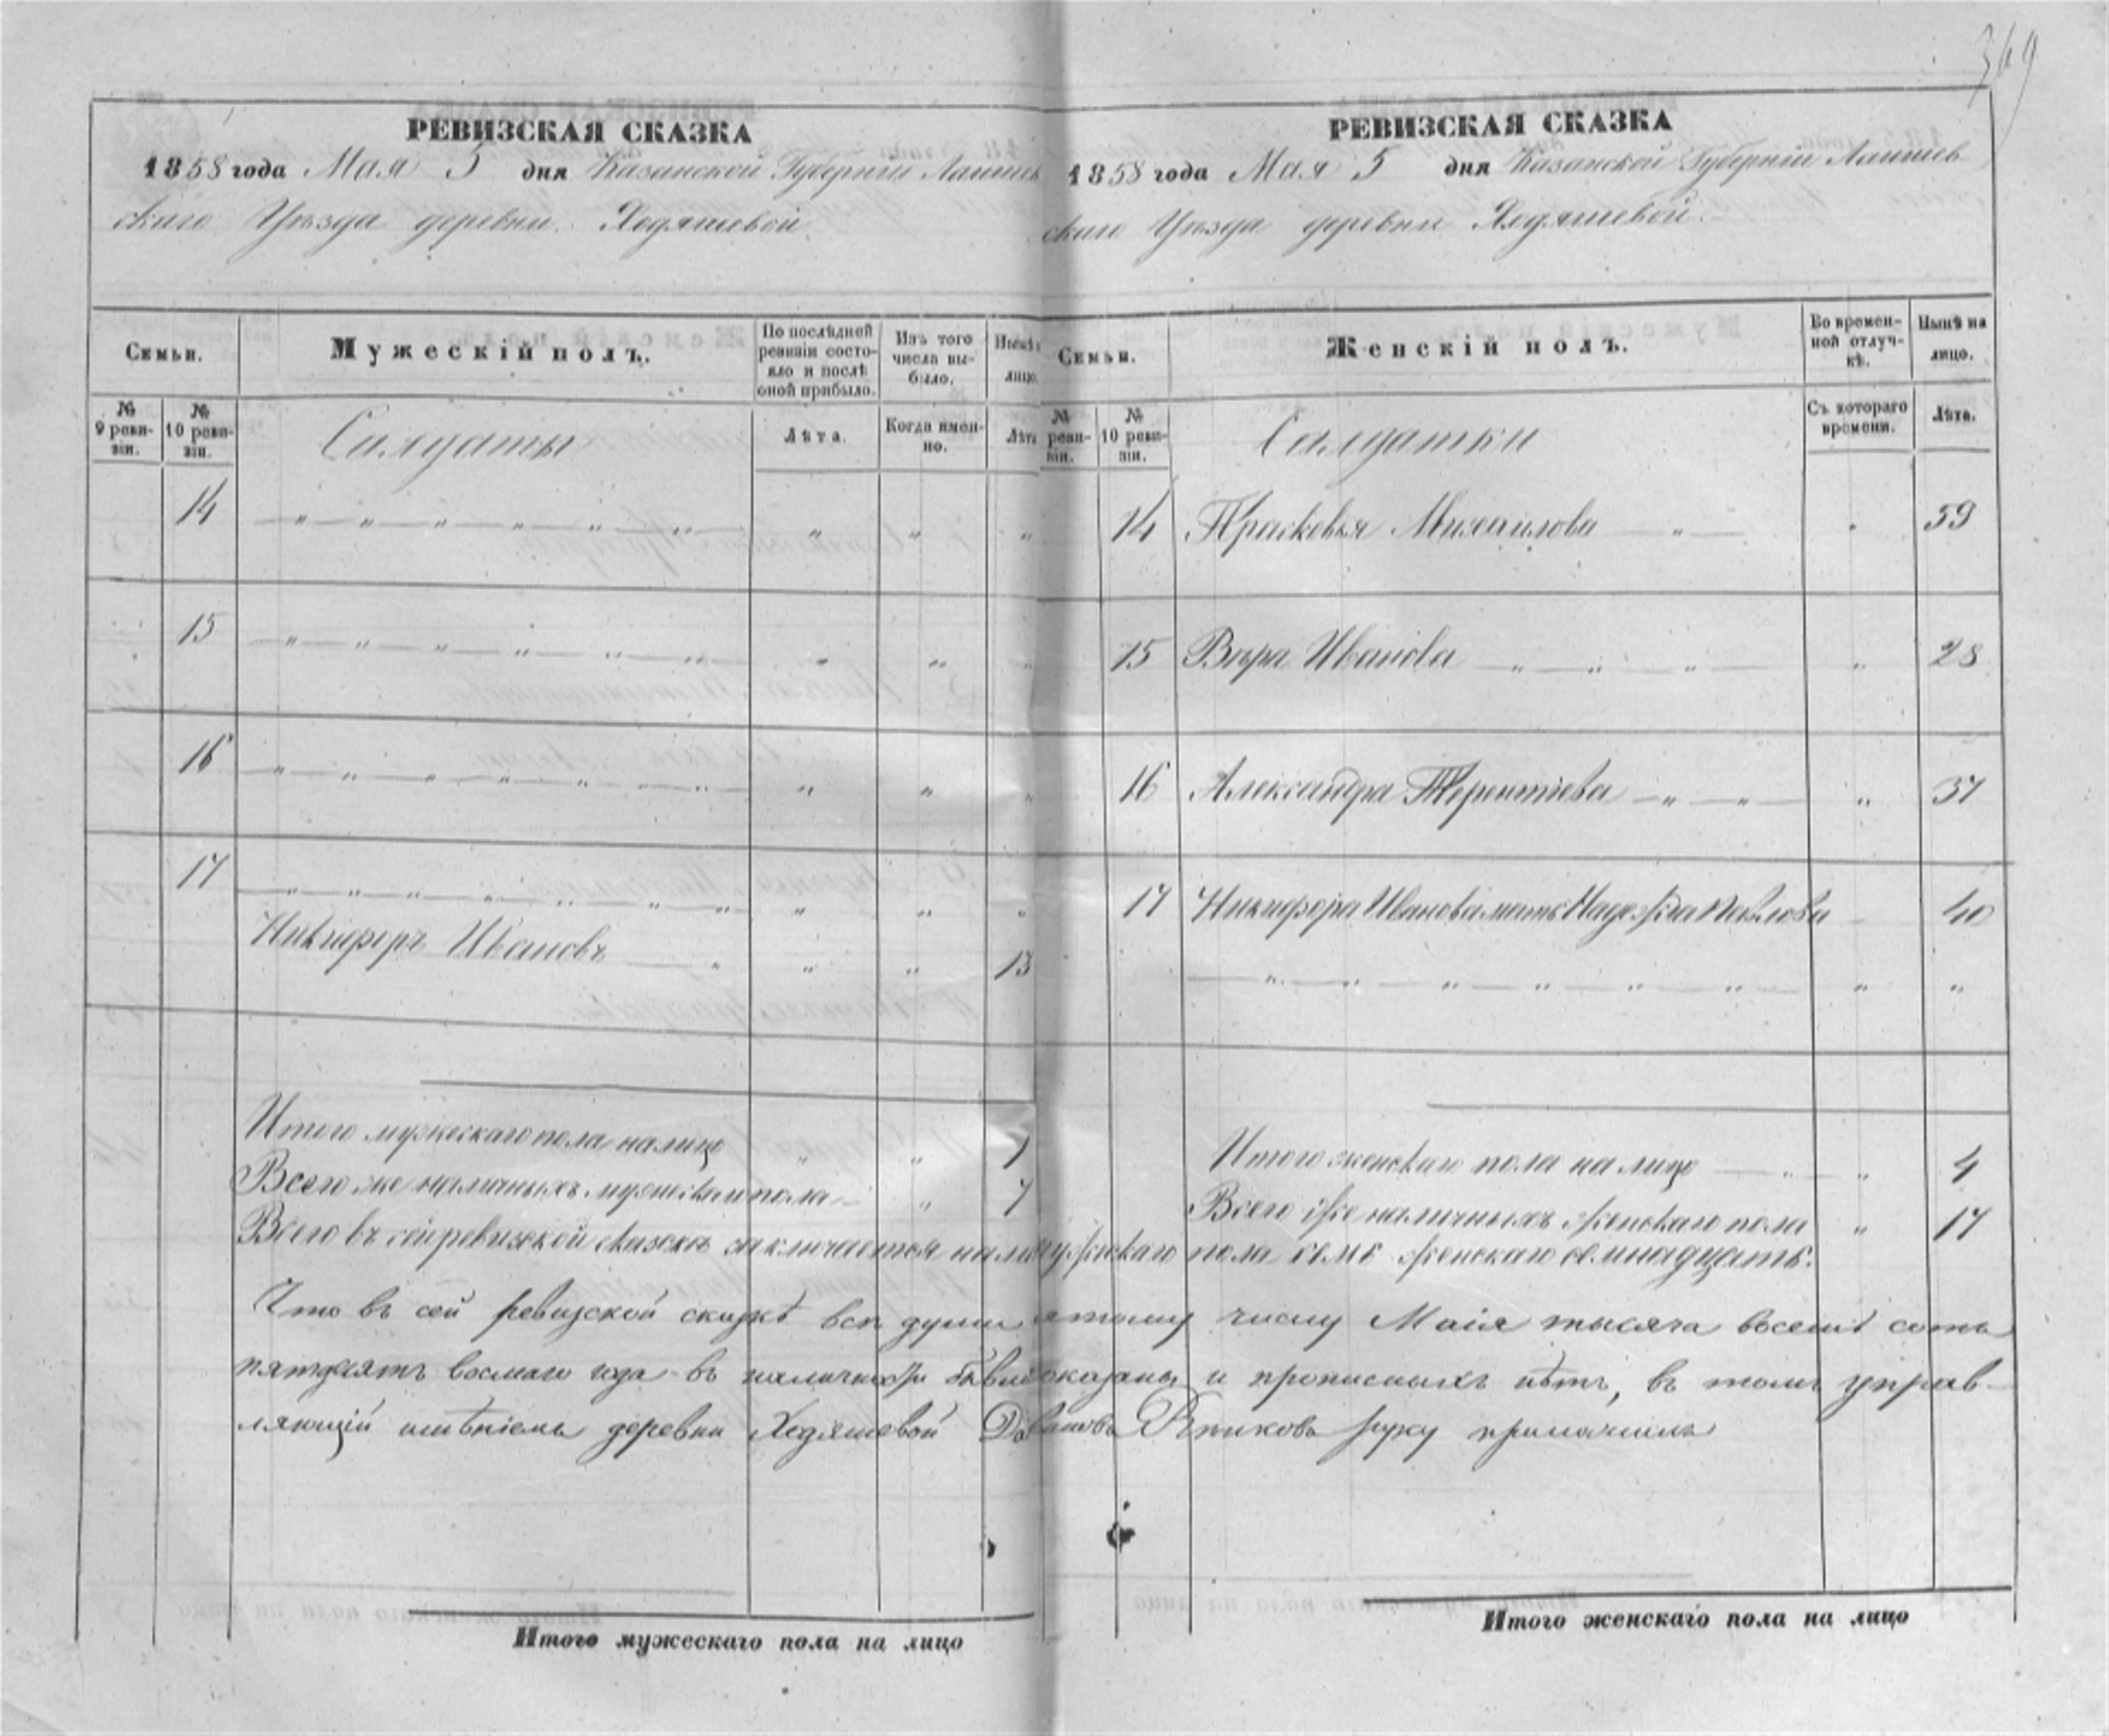 369
РЕВИЗСКАЯ СКАЗКА
1858 года Мая 5 дня Казанской Губерніи Лаишев
скаго Уѣзда деревни Ходяшевой
Семьи.
Мужескій полъ.
По послѣдней ревизіи состояло и послѣ оной прибыло.
Изъ того числа выбыло.
Нынѣ лицо.
№ 9 ревизіи.
№ 10 ревизіи.
Салдаты
Лѣта.
Когда именно.
Лѣта
14 — „ — „ — „ — „ — „ — „ — „ „ „
15 — „ — „ — „ — „ — „ — „ — „ „ „
16 — „ — „ — „ — „ — „ — „ — „ „ „
17 — „ — „ — „ — „ — „ — „ — „ — „ „ „
Никифоръ Ивановъ — „ „ „ 13
Итого мужескаго пола налицо „ „ 1
Всего же наличныхъ мужескаго пола — „ 7
РЕВИЗСКАЯ СКАЗКА
1858 года Мая 5 дня Казанской Губерніи Лаишев
скаго Уѣзда деревни Ходяшевой.
Семьи.
Женскій полъ.
Во временной отлучкѣ.
Нынѣ на лицо.
№ ревизіи.
№ 10 ревизіи.
Салдатки
Съ котораго времени.
Лѣта.
14 Прасковья Михаилова — „ — „ 39
15 Вѣра Иванова — „ — „ — „ — „ 28
16 Александра Терентіева — „ — „ — „ 37
17 Никифора Иванова мать Надежда Павлова — 40
— „ — „ — „ — „ — „ — „ — „ „
Итого женскаго пола на лицо — „ „ 4
Всего же наличныхъ женскаго пола „ 17
Всего въ сей ревизской сказкѣ заключается мужскаго пола семь женскаго семнадцать.
Что въ сей ревизской сказкѣ всѣ души пятому числу Маія тысяча восемь сотъ
пятдесятъ восмаго года въ показаны и прописныхъ нѣтъ, въ томъ управ-
ляющій имѣніемъ деревни Ходяшевой руку приложилъ
Итого мужескаго пола на лицо
Итого женскаго пола на лицо